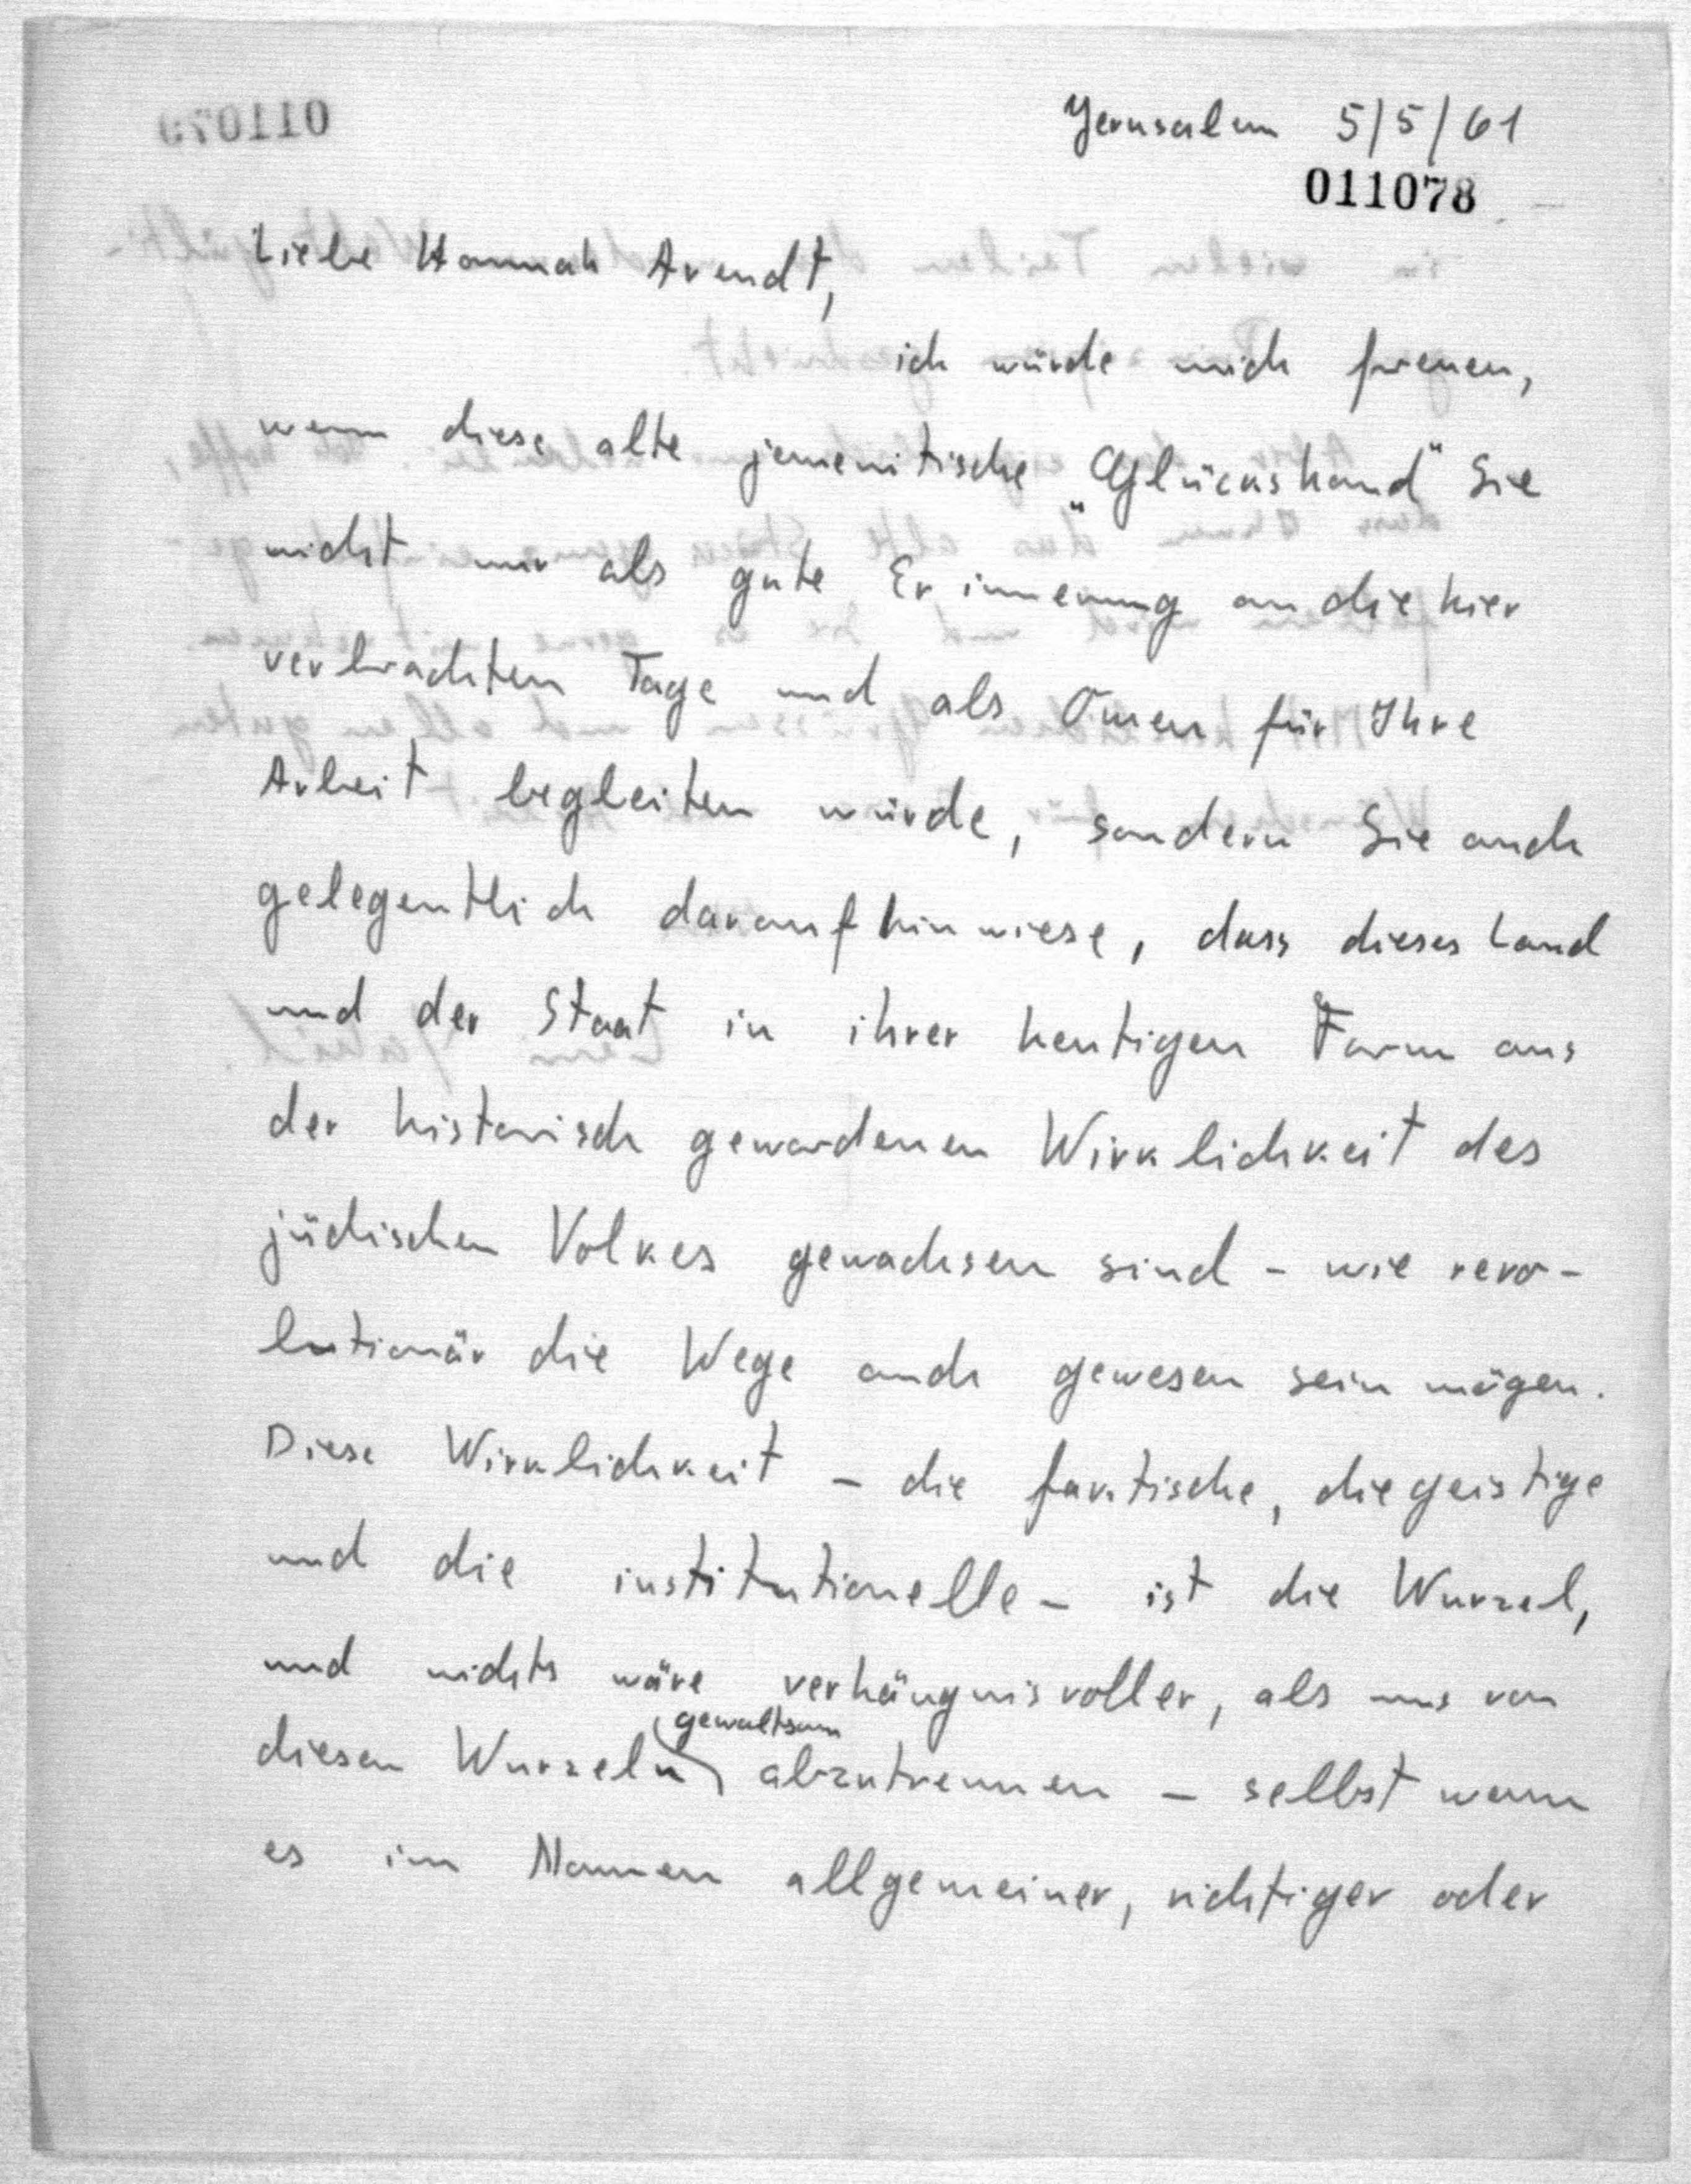 Jerusalem 5/5/61
011078
Liebe Hannah Arendt,
ich würde mich freuen,
wenn diese alte jemenitische „Glückshand" Sie
nicht nur als gute Erinnerung an die hier
verbrachten Tage und als Omen für Ihre
Arbeit begleiten würde, sondern Sie auch
gelegentlich darauf hinwiese, dass dieses Land
und der Staat in ihrer heutigen Form aus
der historisch gewordenen Wirklichkeit des
jüdischen Volkes gewachsen sind - wie revo-
lutionär die Wege auch gewesen sein mögen.
Diese Wirklichkeit - die faktische, die geistige
und die institutionelle - ist die Wurzel,
und nichts wäre verhängnisvoller, als uns von
gewaltsam
diesen Wurzeln abzutrennen - selbst wenn
es im Namen allgemeiner, richtiger oder